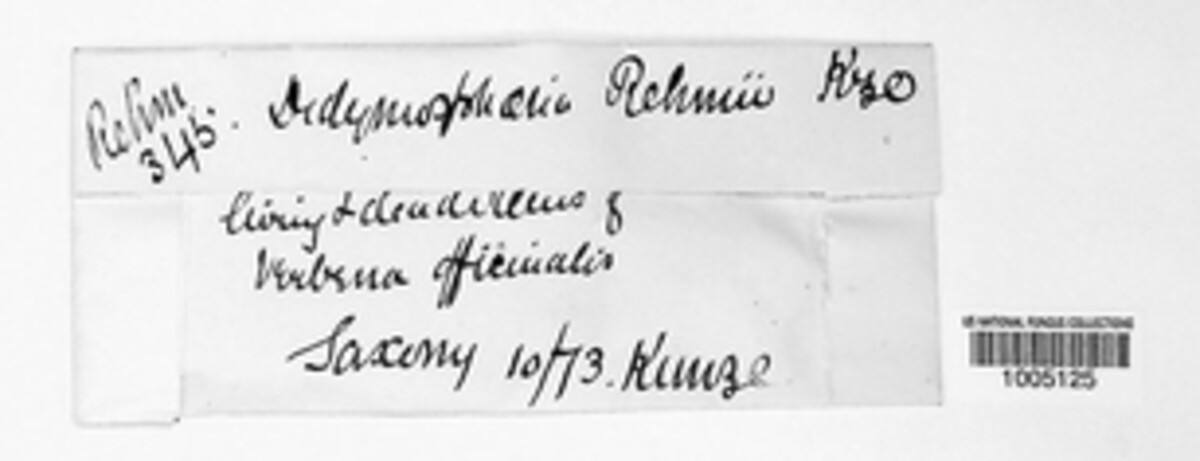 Rehm
345.
Didymosphaeria Rehmii Kze
living & dead stems of
Verbena officinalis
Saxony 10/73. Kunze
US NATIONAL FUNGUS COLLECTIONS
1005125